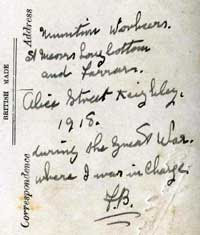 BRITISH MADE
Correspondence
Address
Munition Workers.
At Messrs Longbottom
and Farrars.
Alice Street Keighley.
1918.
during the Great War.
where I was in Charge.
FB.